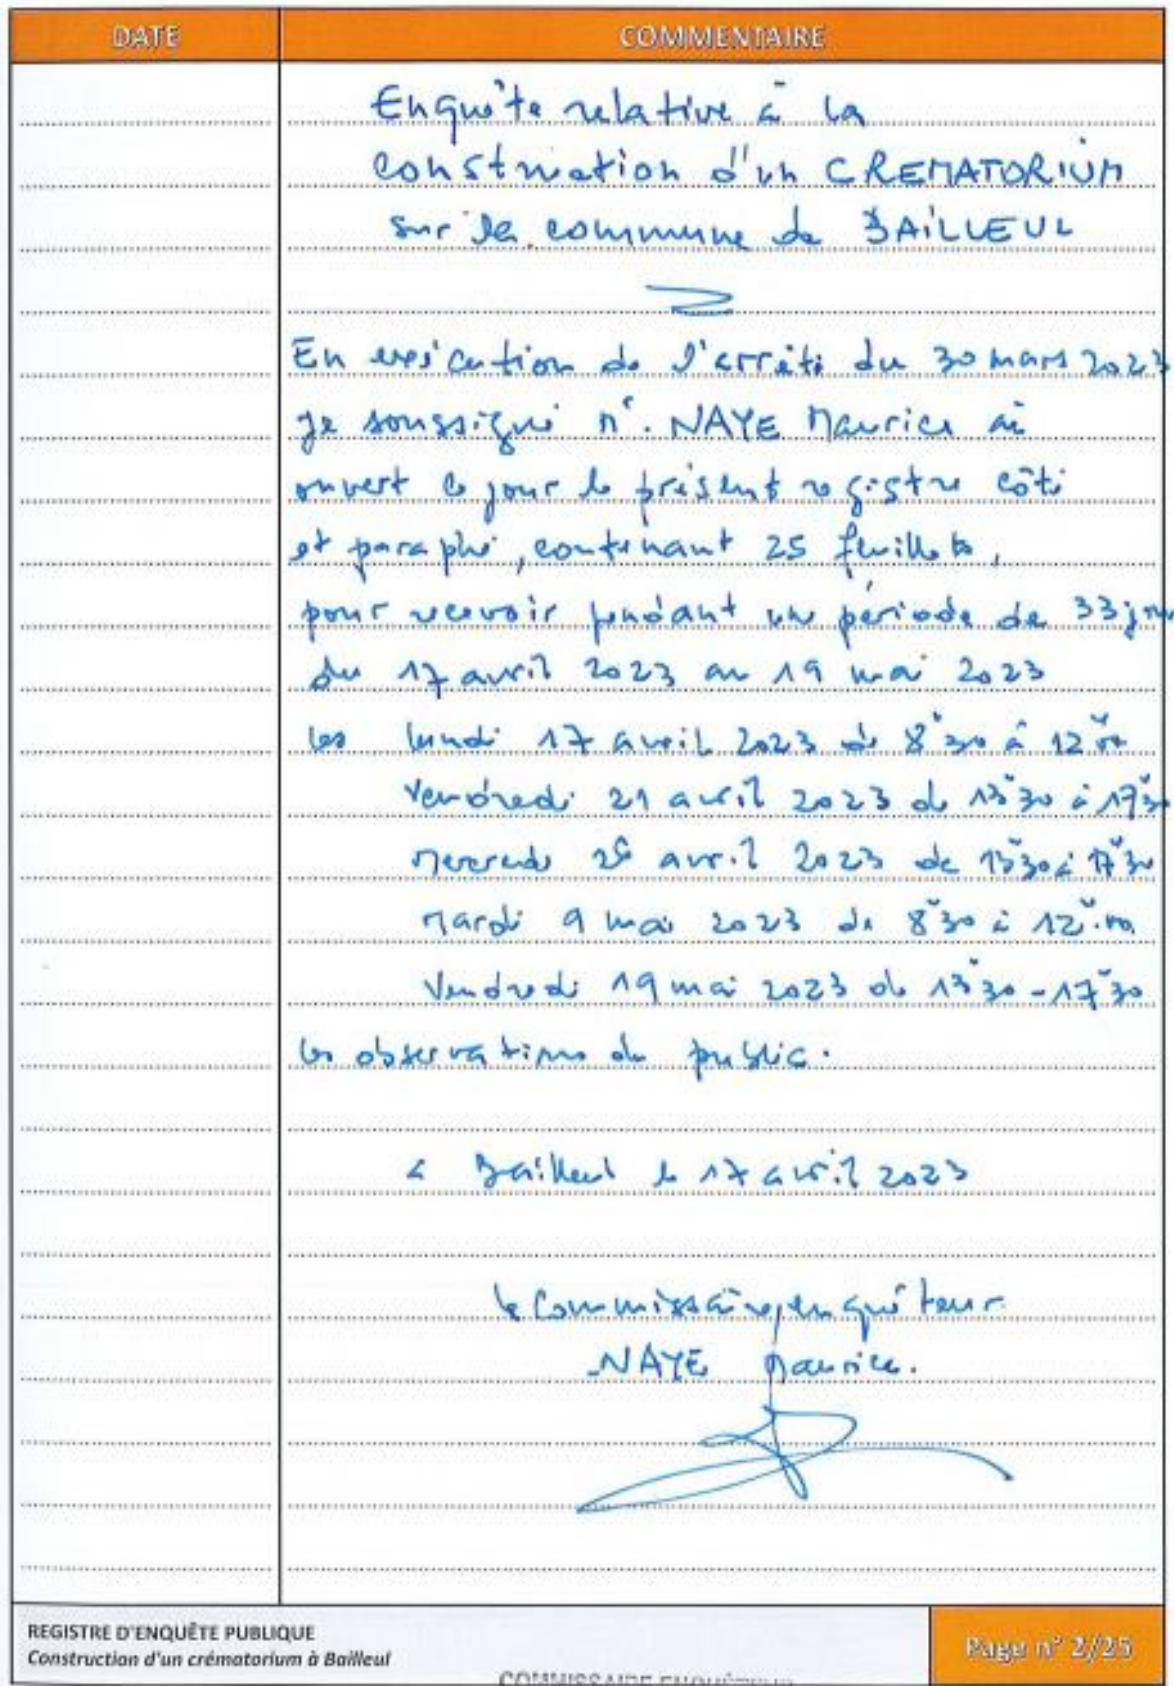 DATE
COMMENTAIRE
Enquête relative à la
construction d'un CREMATORIUM
sur la commune de BAILLEUL
En exécution de l'arrêté du 30 mars 2023
je soussigné Mr. NAYE Maurice ai
ouvert ce jour le présent registre côté
et paraphé, contenant 25 feuillets,
pour recevoir pendant une période de 33 jours
du 17 avril 2023 au 19 mai 2023
les lundi 17 avril 2023 de 8h30 à 12h00
vendredi 21 avril 2023 de 13h30 à 17h30
Mercredi 26 avril 2023 de 13h30 à 17h30
Mardi 9 mai 2023 de 8h30 à 12h00
Vendredi 19 mai 2023 de 13h30 - 17h30
les observations du public.
à Bailleul le 17 avril 2023
le Commissaire enquêteur
NAYE Maurice.
REGISTRE D'ENQUÊTE PUBLIQUE
Construction d'un crématorium à Bailleul
Page n° 2/25
COMMISSAIRE ENQUÊTEUR